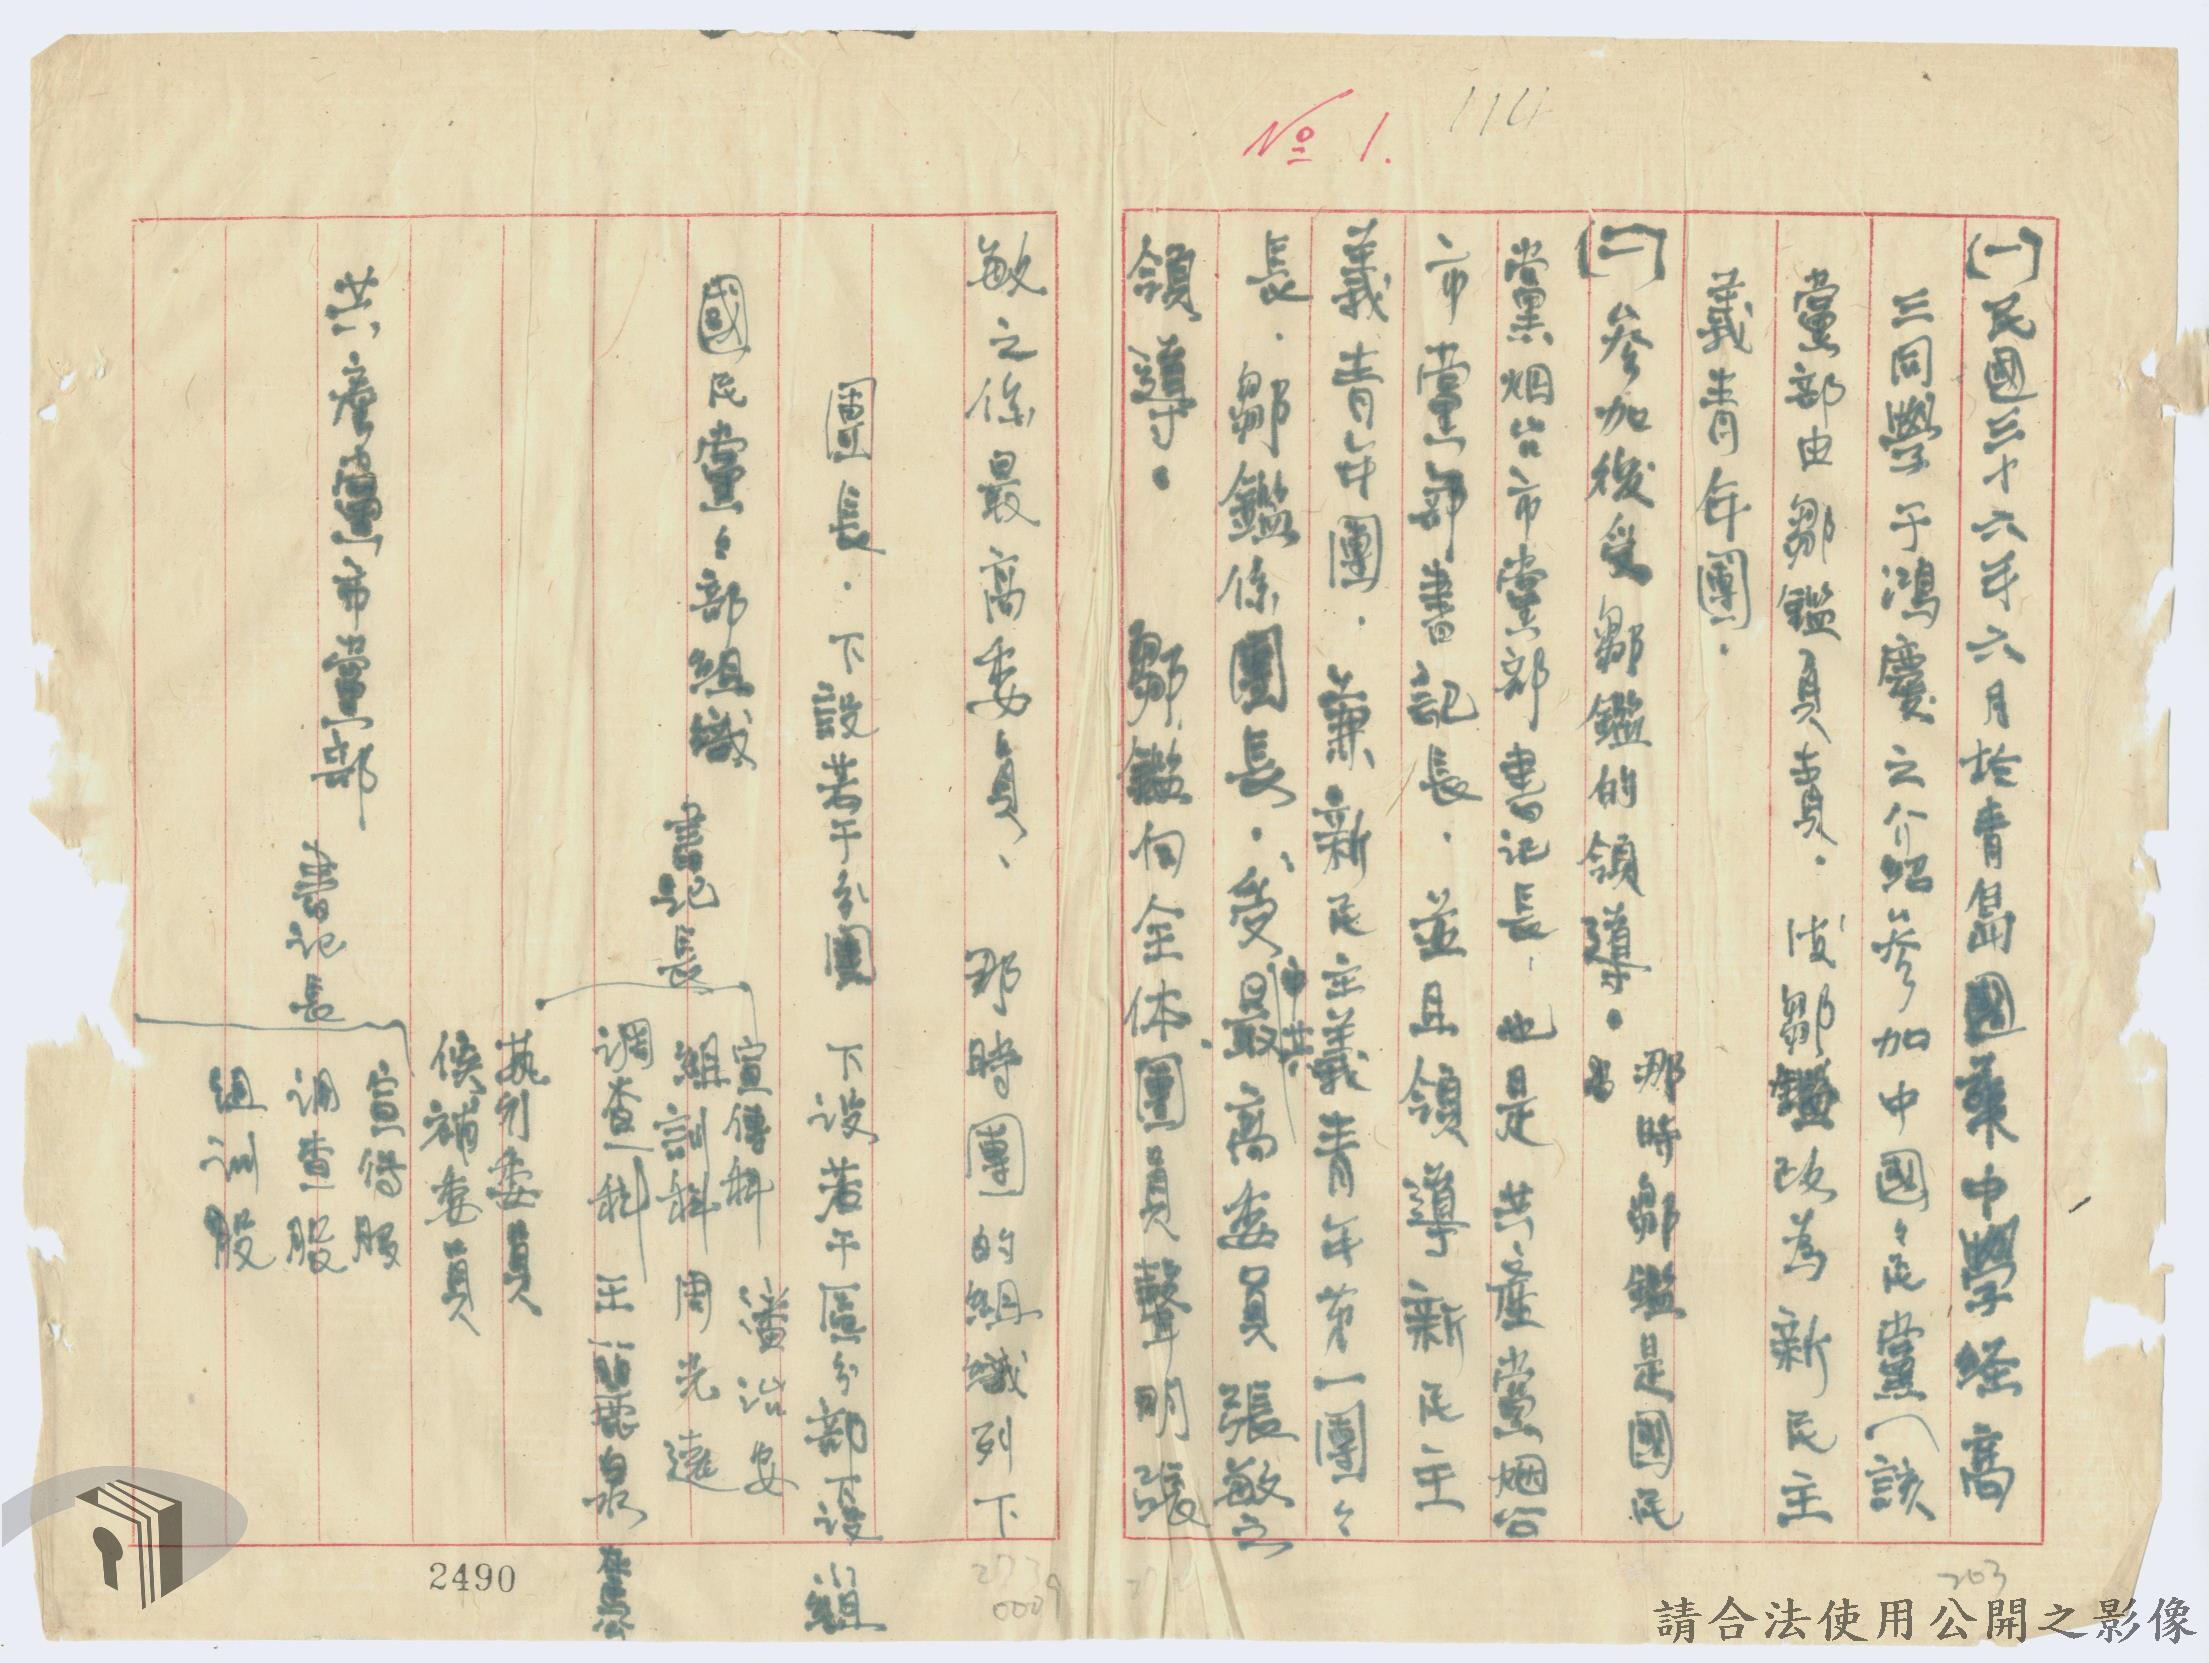 № 1.
114
(一)民國三十六年六月於青島國華中學経高
三同學于鴻慶之介紹參加中國々民黨(該
黨部由鄒鑑負責.後鄒鑑改為新民主
義青年團.
(二)參加後受鄒鑑的領導.那時鄒鑑是國民
黨烟台市黨部書记長.也是共產黨烟台
市黨部書記長.並且領導新民主
義青年團.兼新民主義青年第一團々
長.鄒鑑係團長.受中共最高委員張敏之
領導.鄒鑑向全体團員聲明張
敏之係最高委員.那時團的組織列下
團長.下設若干分團 下设若干區分部下设小組
國民黨々部組織
書记長
宣傳科 潘治安
組訓科 周光遠
调查科
执行委員
候補委員
共產黨市黨部
書记長
宣传股
调查股
组训股
2490
203
請合法使用公開之影像